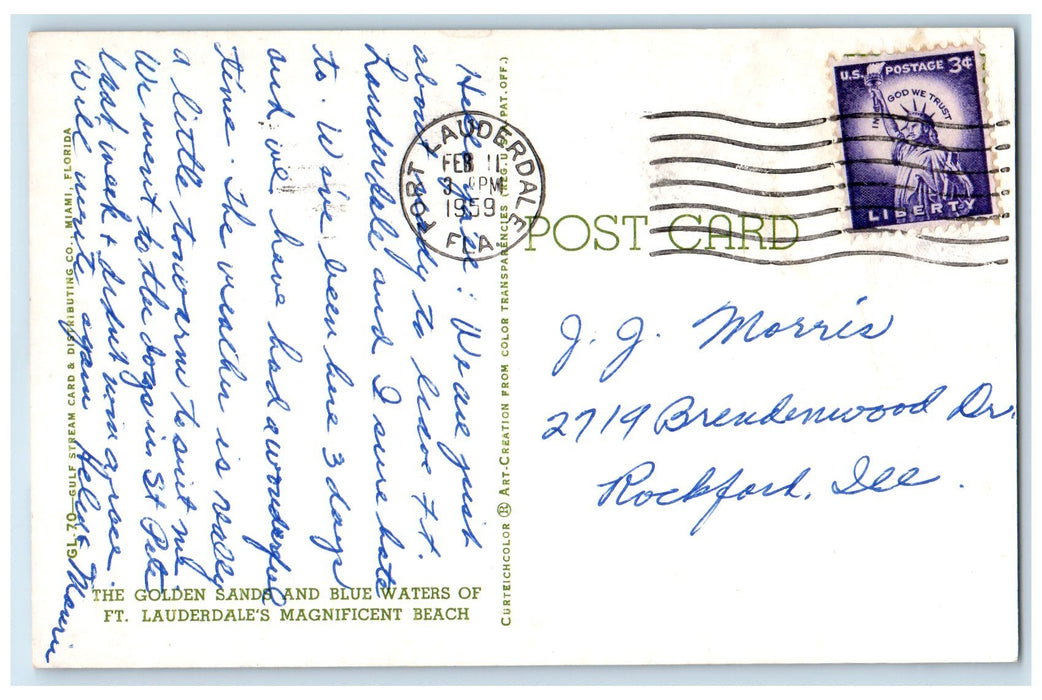 Hello there: We are just
about ready to leave Ft.
Lauderdale and I sure hate
to. We've been here 3 days
and we have had a wonderful
time. The weather is really
a little to warm to suit me.
We went to the dogs in St Pete
last week & didn't win a race.
Will write again Helen &
GL-70—GULF STREAM CARD & DISTRIBUTING CO., MIAMI, FLORIDA
THE GOLDEN SANDS AND BLUE WATERS OF
FT. LAUDERDALE'S MAGNIFICENT BEACH
CURTEICHCOLOR ® ART-CREATION FROM COLOR TRANSPARENCIES (REG. U.S. PAT. OFF.)
FORT LAUDERDALE
FEB 11
PM
1959
FLA
POST CARD
U.S. POSTAGE 3¢
IN GOD WE TRUST
LIBERTY
J. J. Morris
2719 Brendenwood Dr.
Rockford, Ill.